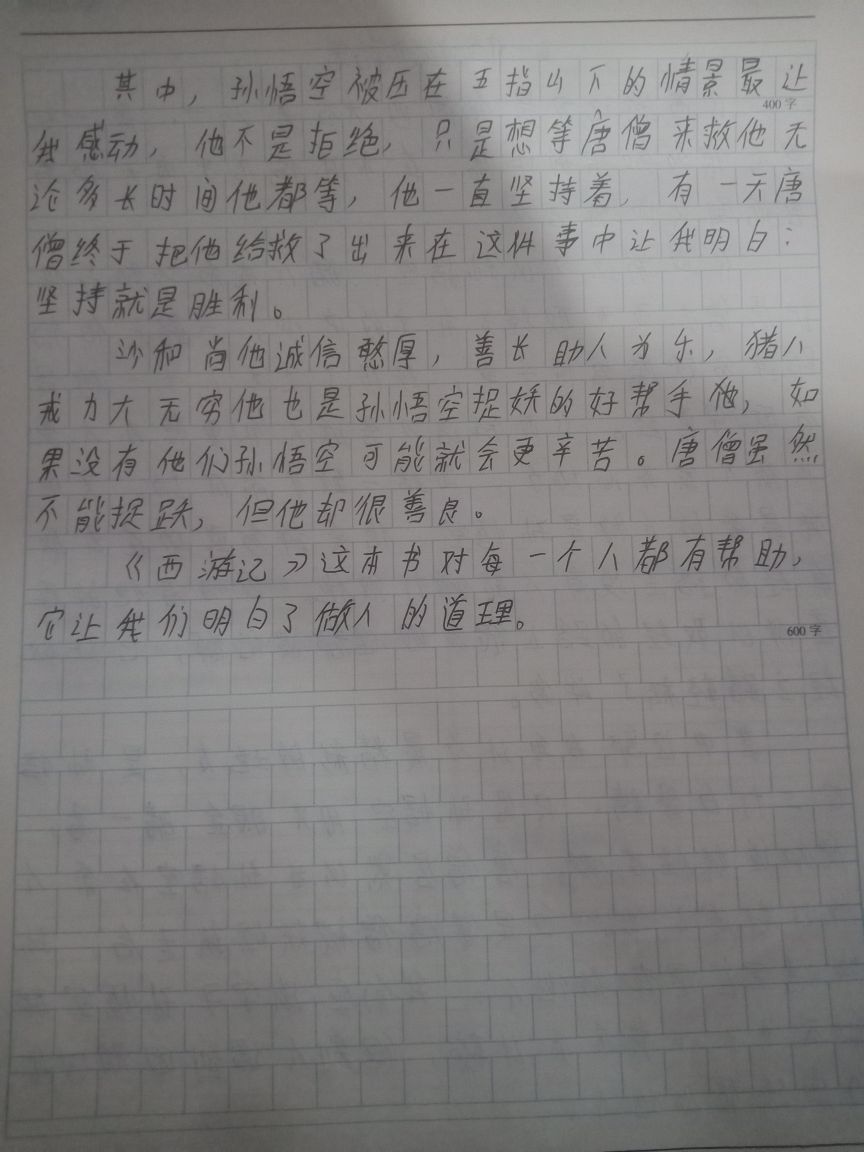 其中，孙悟空被压在五指山下的情景最让
400字
我感动，他不是拒绝，只是想等唐僧来救他无
论多长时间他都等，他一直坚持着，有一天唐
僧终于把他给救了出来在这件事中让我明白：
坚持就是胜利。
沙和尚他诚信憨厚，善长助人为乐，猪八
戒力大无穷他也是孙悟空捉妖的好帮手他，如
果没有他们孙悟空可能就会更辛苦。唐僧虽然
不能捉跃，但他却很善良。
《西游记》这本书对每一个人都有帮助，
它让我们明白了做人的道理。
600字